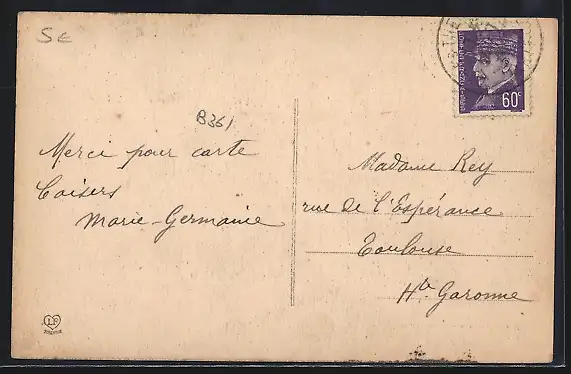 5€
B361
Merci pour carte
Baisers
Marie-Germaine
60c
Madame Rey
rue de l'Espérance
Toulouse
Hte Garonne
LF